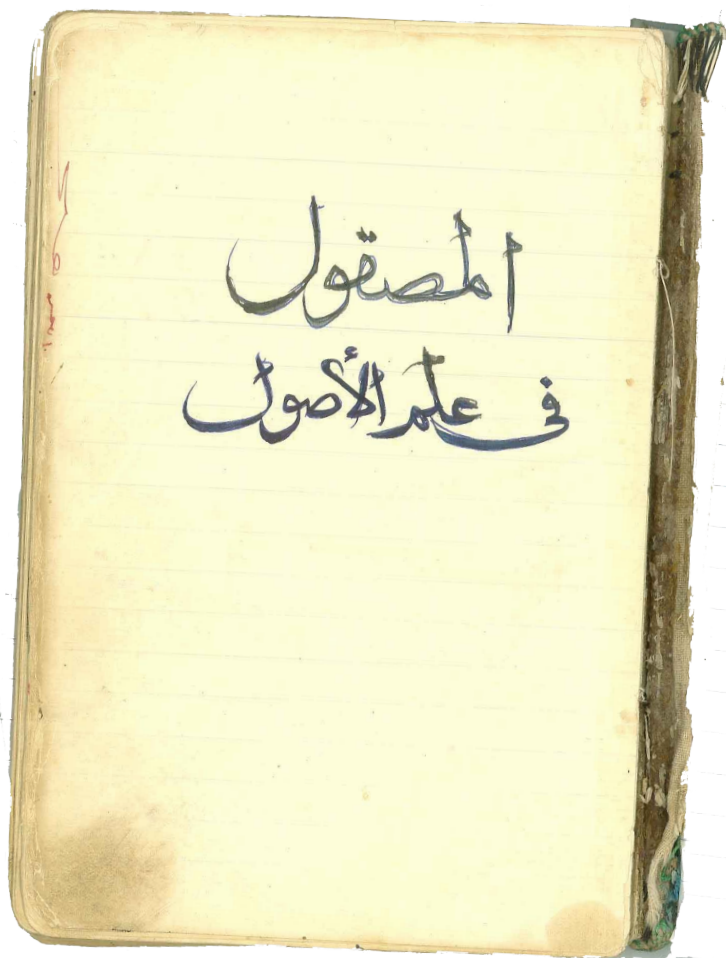 المصقول
فى علم الأصول